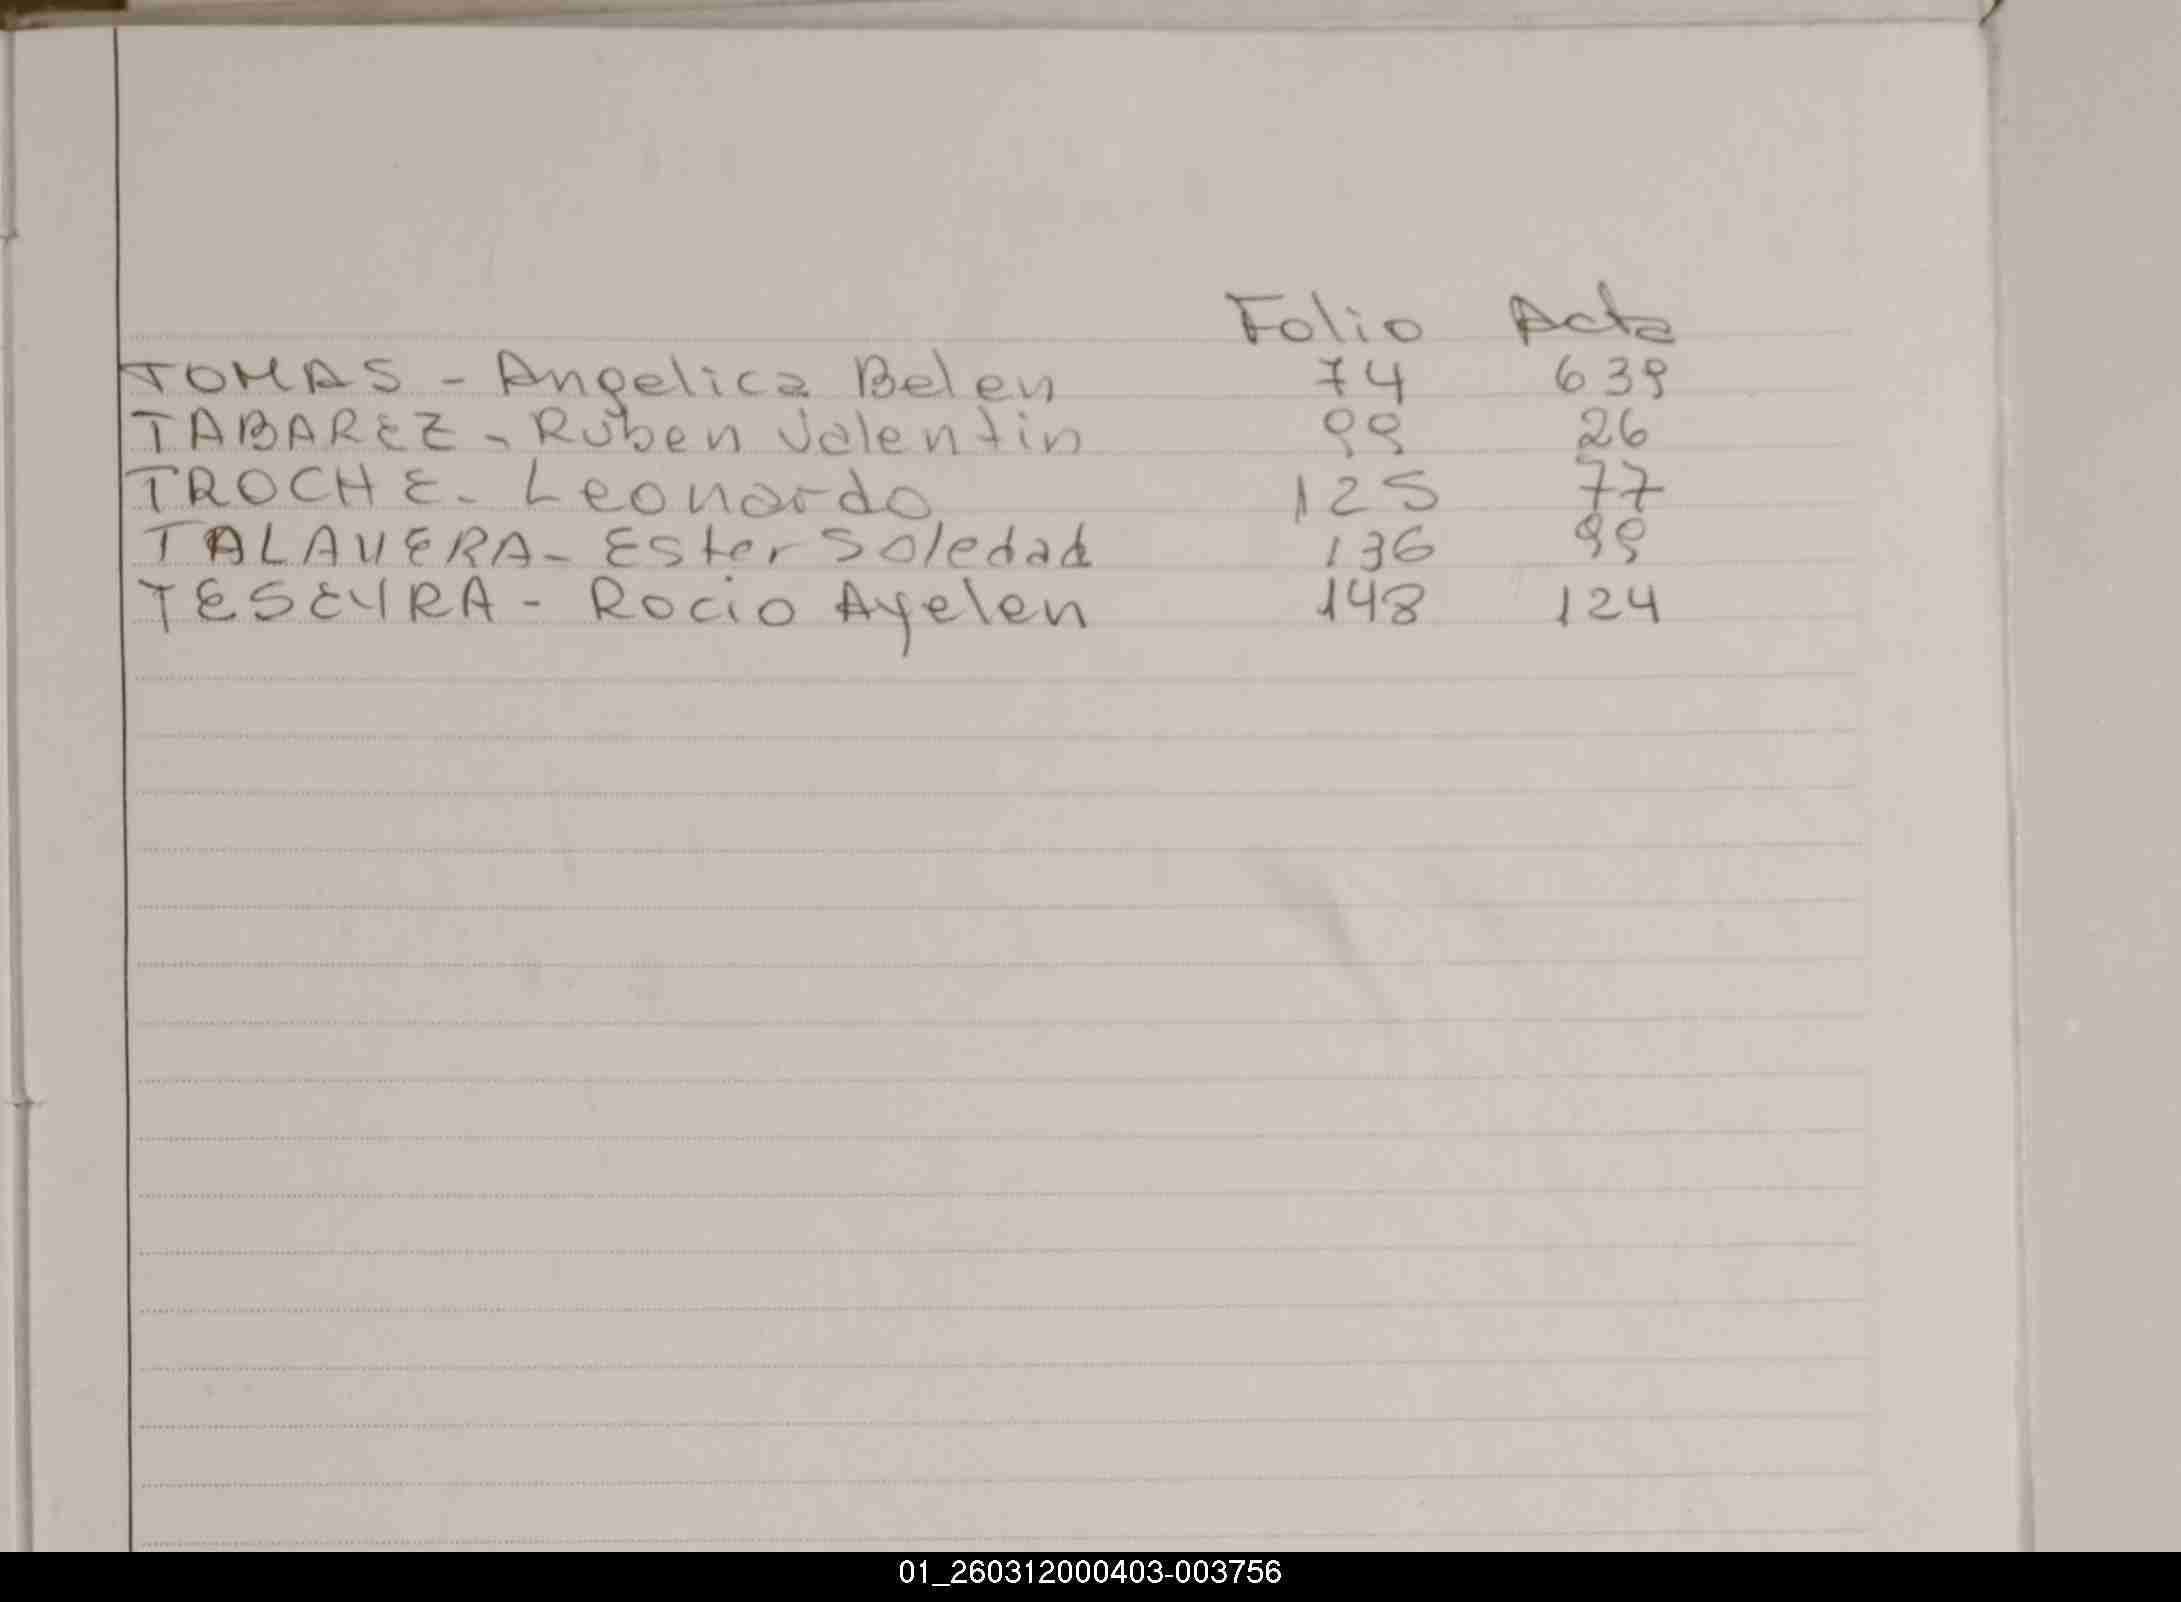 Folio Acta
TOMAS - Angelica Belen 74 639
TABAREZ - Ruben Valentin 99 26
TROCHE - Leonardo 125 77
TALAVERA - Ester Soledad 136 99
TESEYRA - Rocio Ayelen 148 124
01_260312000403-003756